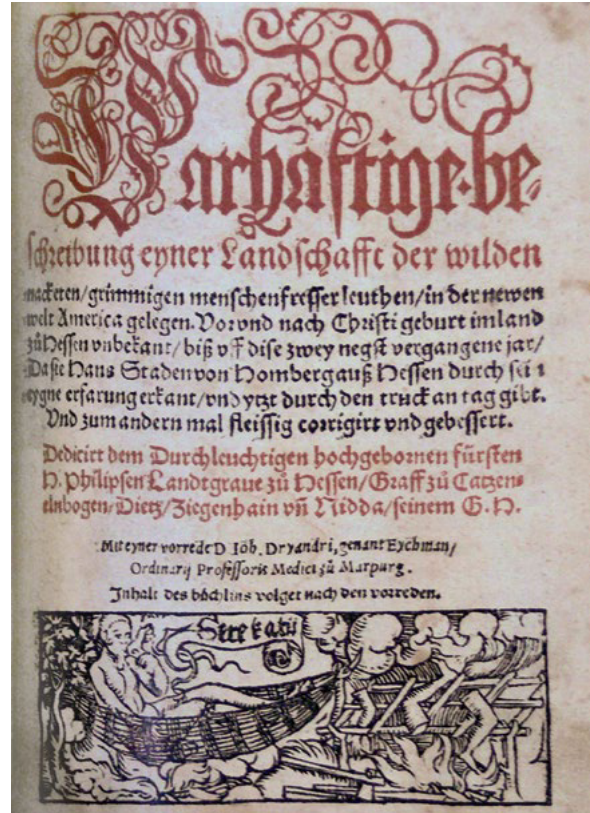 Warhaftige be-
schreibung eyner Landschafft der wilden
nacketen/grimmigen menschenfresser leuthen/in der newen
welt America gelegen. Vor vnd nach Christi geburt im land
zů Hessen vnbekant/biß vff dise zwey negst vergangene jar/
Da sie Hans Staden von Homberg auß Hessen durch sei
eygne erfarung erkant/vnd ytzt durch den truck an tag gibt.
Vnd zum andern mal fleissig corrigirt vnd gebessert.
Dedicirt dem Durchleuchtigen hochgebornen fürsten
H. Philipsen Landtgraue zů Hessen/Graff zů Catzen-
elnbogen/Dietz/Ziegenhain vñ Nidda/seinem G. H.
Mit eyner vorrede D. Joh. Dryandri, genant Eychman/
Ordinarij Professoris Medici zů Marpurg.
Inhalt des bůchlins volget nach den vorreden.